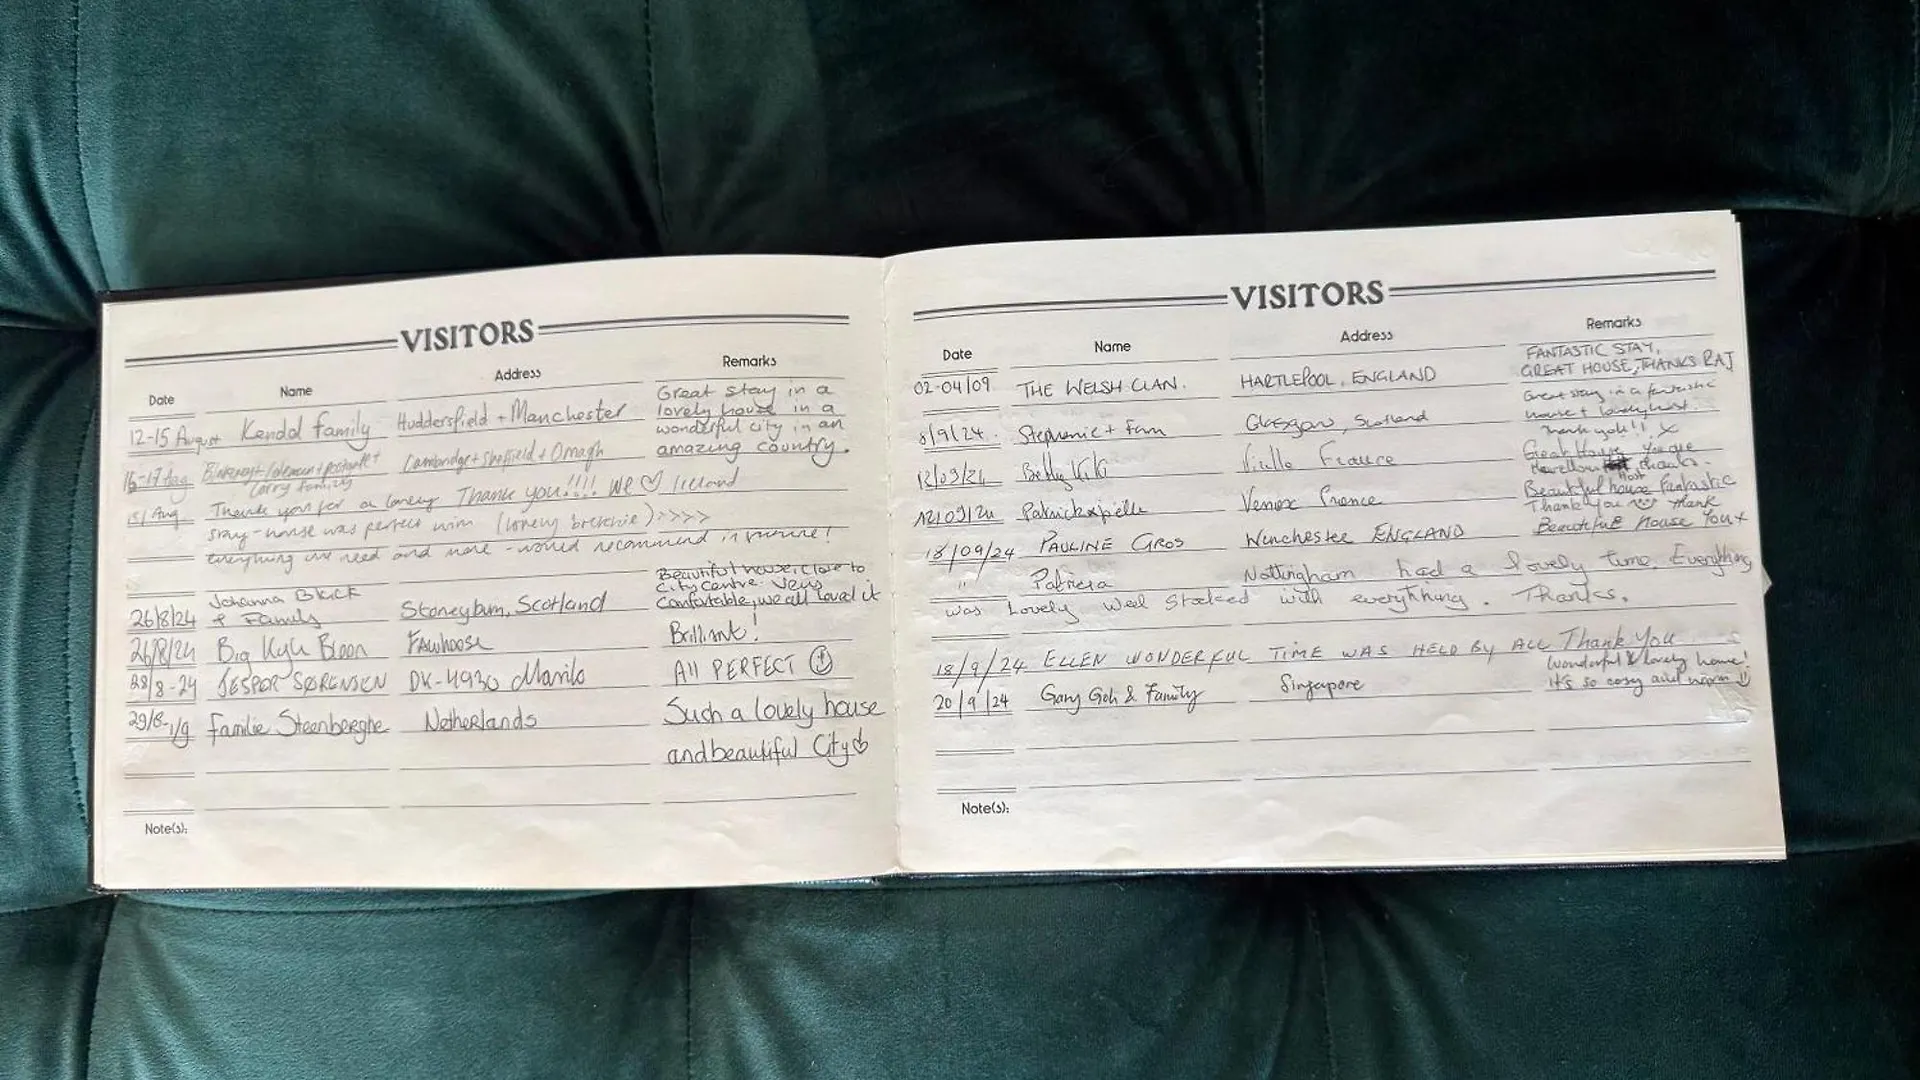 VISITORS
Date Name Address Remarks
12-15 August Kendal family Huddersfield + Manchester Great stay in a
lovely house in a
wonderful city in an
amazing country.
16-17 Aug Cambridge + Sheffield + Omagh
family
Thank you for a lovely Thank you!!!! We ♡ Ireland
stay - house was perfect with >>>>
everything we need and more - would recommend
26/8/24 Johanna
& Family Stoneyburn, Scotland Beautiful house, close to
city centre. Very
comfortable, we all loved it
26/8/24 Big Kyle Fauldhouse Brilliant!
28/8-24 JESPER SØRENSEN DK-4930 Maribo All PERFECT ☺
29/8-1/9 Familie Steenberghe Netherlands Such a lovely house
and beautiful City
Note(s):
VISITORS
Date Name Address Remarks
02-04/09 THE WELSH CLAN. HARTLEPOOL, ENGLAND FANTASTIC STAY,
GREAT HOUSE, THANKS RAJ
8/9/24. Stephanie + Fam Glasgow, Scotland Great stay in a fantastic
house + lovely host.
Thank you!! x
12/09/24 Betty France Great House You are
host, thanks.
12/09/24 France Beautiful house Fantastic
Thank you ☺ Thank
18/09/24 PAULINE GROS Winchester ENGLAND Beautiful House You x
" Patricia Nottingham had a lovely time. Everything
was lovely well stocked with everything. Thanks.
18/9/24 ELLEN WONDERFUL TIME WAS HELD BY ALL Thank You
20/9/24 Gary Goh & Family Singapore Wonderful & lovely home!
It's so cosy and warm ☺
Note(s):